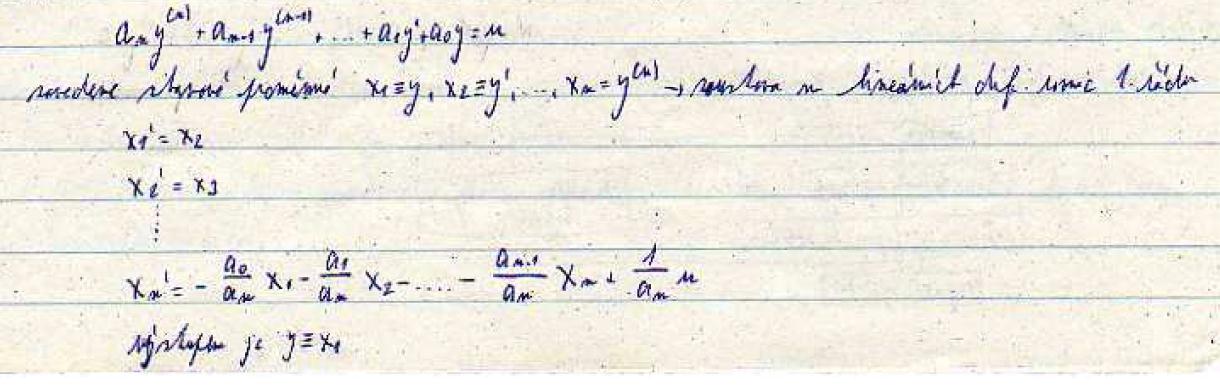 aₙy⁽ⁿ⁾ + aₙ₋₁y⁽ⁿ⁻¹⁾ + ... + a₁y' + a₀y = u
zavedeme stavové proměnné x₁ ≡ y, x₂ ≡ y', ..., xₙ = y⁽ⁿ⁾ → soustava n lineárních dif. rovnic 1. řádu
x₁' = x₂
x₂' = x₃
⋮
xₙ' = - a₀/aₙ x₁ - a₁/aₙ x₂ - .... - aₙ₋₁/aₙ xₙ + 1/aₙ u
výstupem je y ≡ x₁